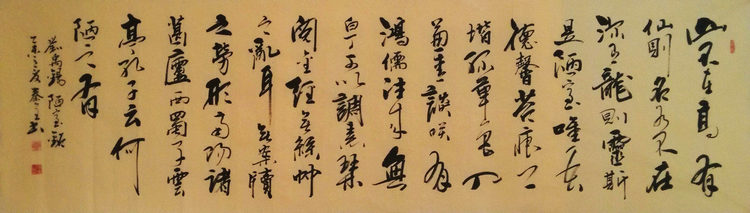 山不在高有
仙則名水不在
深有龍則靈斯
是陋室唯吾
德馨苔痕上
堦綠草色入
簾青談咲有
鴻儒往來無
白丁可以調素琴
閱金經無絲竹
之亂耳無案牘
之勞形南陽諸
葛廬西蜀子雲
亭孔子云何
陋之有
劉禹錫 陋室銘